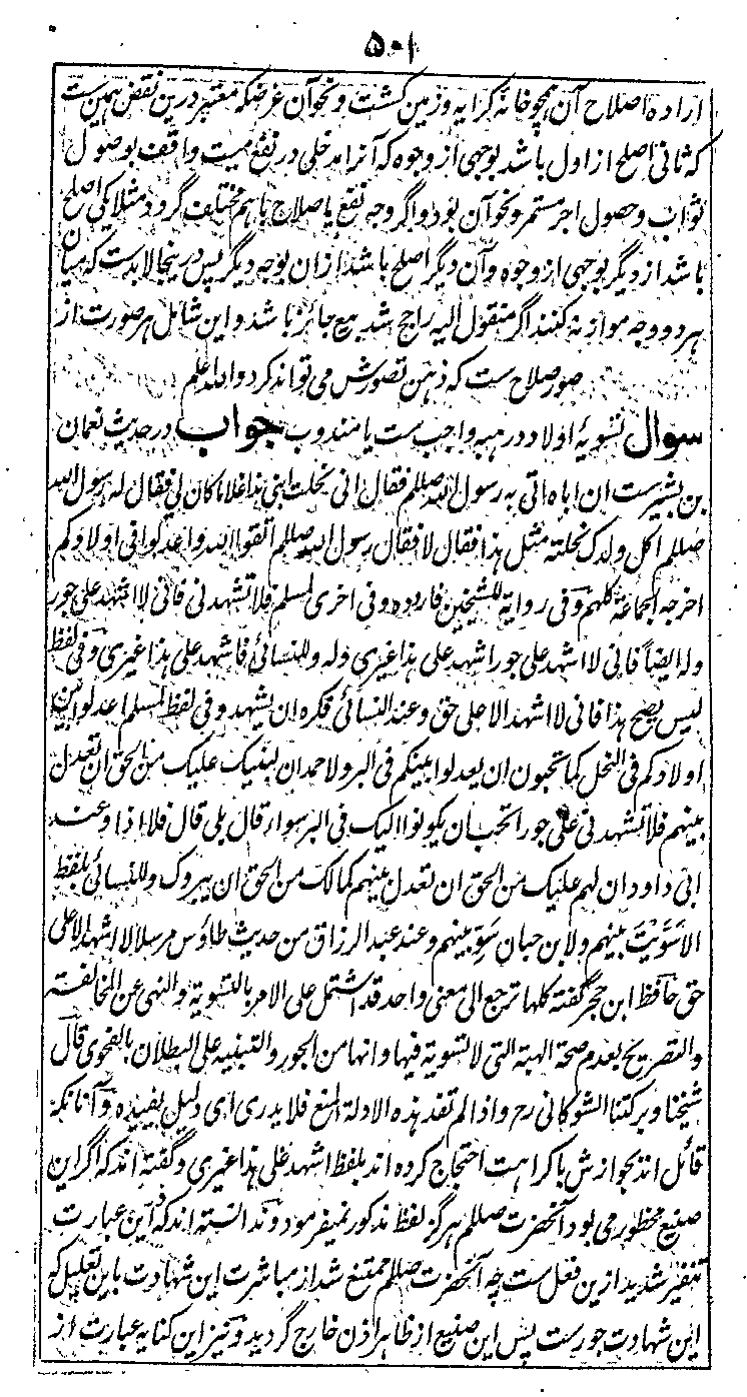 ۵۰۱
اراده اصلاح آن همچو خانه کرایه و زمین کشت و نحو آن غرضکه معتبر درین نقض همین ست
که ثانی اصلح از اول باشد بوجهی از وجوه که آنرا دخلی در نفع میت واقف بوصول
ثواب و حصول اجر مستمر و نحو آن بود و اگر وجه نفع یا صلاح باهم مختلف گرود مثلا یکی اصلح
باشد از دیگر بوجهی از وجوه و آن دیگر اصلح باشد ازان بوجه دیگر پس درینجا لابدست که میان
هر دو وجه موازنه کنند اگر منقول الیه راجح شد بیع جائز باشد و این شامل هر صورت از
صور صلاح ست که ذهن تصورش می تواند کرد والله اعلم
سوال تسویهٔ اولاد در هبه واجب ست یا مندوب جواب در حدیث نعمان
بن بشیرست ان اباه اتی به رسول الله صللم فقال انی نحلت ابنی هذا غلاما کان لی فقال له رسول الله
صللم اکل ولدک نحلته مثل هذا فقال لا فقال رسول الله صللم اتقوا الله واعدلوا فی اولادکم
اخرجه الجماعة کلهم وفی روایة للشیخین فاردده وفی اخری لمسلم فلا تشهدنی فانی لا اشهد علی جور
وله ایضاً فانی لا اشهد علی جور اشهد علی هذا غیری وله وللنسائی فاشهد علی هذا غیری وفی لفظ
لیس یصح هذا فانی لا اشهد الا علی حق وعند النسائی فکره ان یشهد وفی لفظ لمسلم اعدلوا بین
اولادکم فی النحل کما تحبون ان یعدلوا بینکم فی البر ولاحمد ان لبنیک علیک من الحق ان تعدل
بینهم فلا تشهدنی علی جور اتحب ان یکونوا الیک فی البر سواء قال بلی قال فلا اذا وعند
ابی داود ان لهم علیک من الحق ان تعدل بینهم کما لک من الحق ان یبروک وللنسائی بلفظ
الا سَوَّیْتَ بینهم ولابن حبان سَوِّ بینهم وعند عبد الرزاق من حدیث طاؤس مرسلا لا اشهد الا علی
حق حافظ ابن حجر گفته کلها ترجع الی معنی واحد قد اشتمل علی الامر بالتسویة والنهی عن المخالفة
والتصریح بعدم صحة الهبة التی لا تسویة فیها وانها من الجور والتنبیه علی البطلان بالفحوی قال
شیخنا وبرکتنا الشوکانی رح واذا لم تفد هذه الادلة المنع فلا یدری ای دلیل یفیده و آنانکه
قائل اند بجوازش با کراهت احتجاج کرده اند بلفظ اشهد علی هذا غیری و گفته اند که اگر این
صنیع محظور می بود آنحضرت صللم هرگز لفظ مذکور نمیفرمود و ندانسته اند که این عبارت
تنفیر شدید ازین فعل ست چه آنحضرت صللم ممتنع شد از مباشرت این شهادت باین تعلیل که
این شهادت جورست پس این صنیع از ظاهر اذن خارج گردید و نیز این کنایه عبارت از